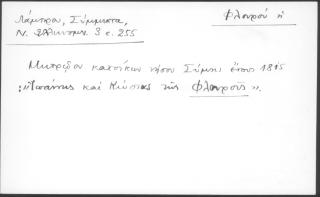 Λάμπρου, Σύμμικτα,
Ν. Ἑλληνομν. 3 σ. 255
Φλουροῦ ἡ
Μητρῷον κατοίκων νήσου Σύμης ἔτους 1815
: "Ἰωάννης καὶ Κώστας τῆς Φλουροῦς".